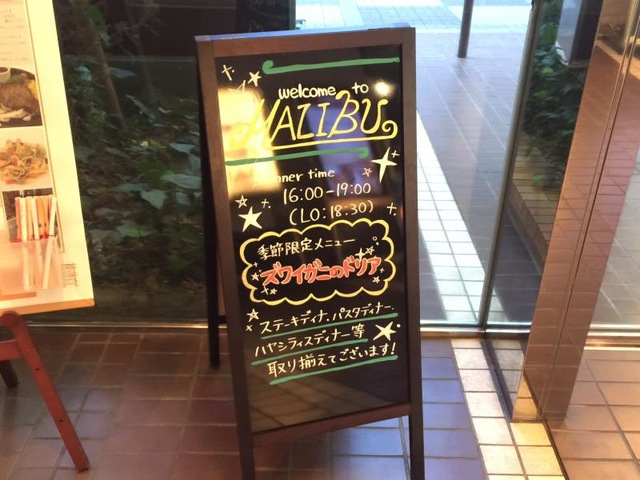 welcome to
MALIBU
Dinner time
16:00-19:00
(LO:18:30)
季節限定メニュー
ズワイガニのドリア
ステーキディナー、パスタディナー、
ハヤシライスディナー等
取り揃えてございます!